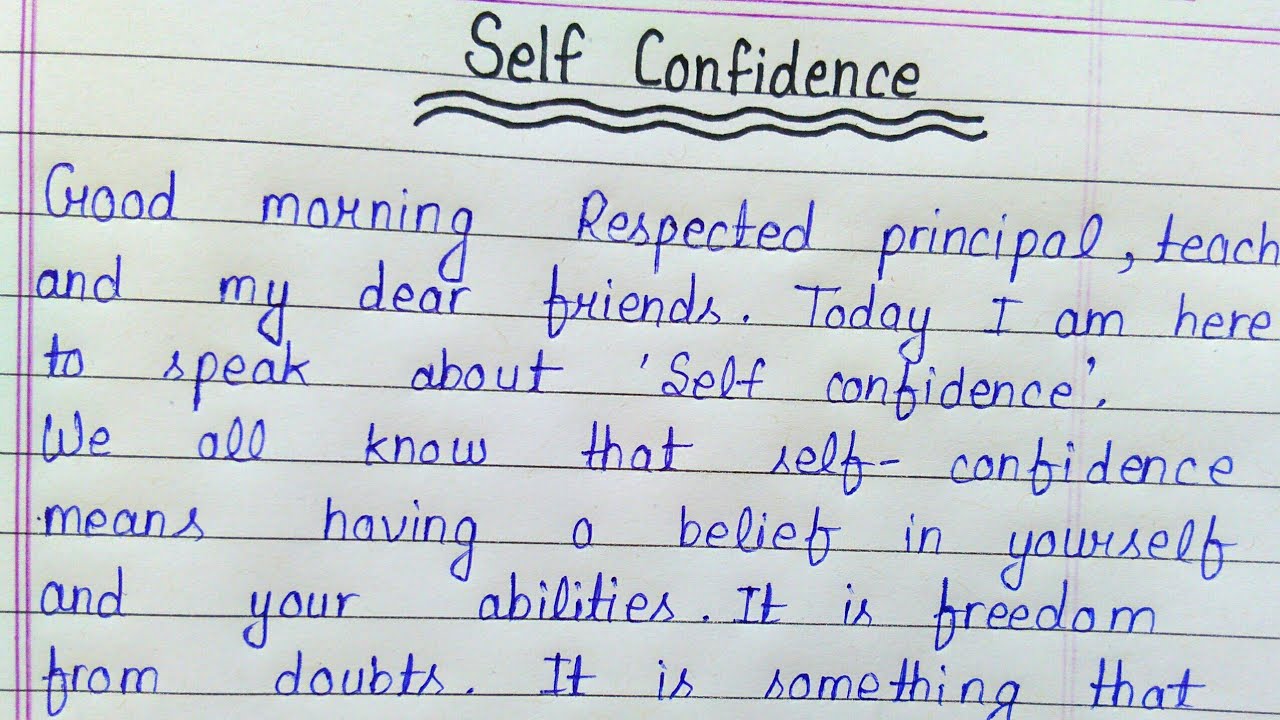 Self Confidence
Good morning Respected principal, teach
and my dear friends. Today I am here
to speak about 'Self confidence'.
We all know that self-confidence
means having a belief in yourself
and your abilities. It is freedom
from doubts. It is something that